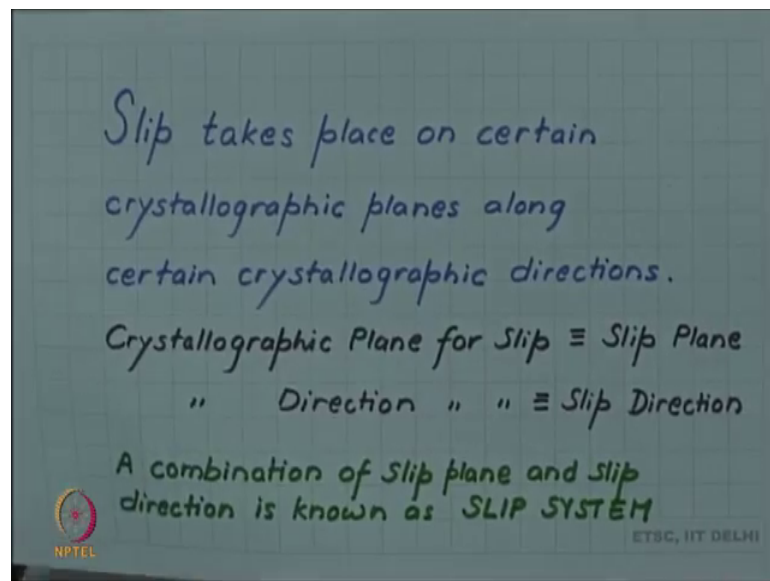 Slip takes place on certain
crystallographic planes along
certain crystallographic directions.
Crystallographic Plane for Slip ≡ Slip Plane
" Direction " " ≡ Slip Direction
A combination of slip plane and slip
direction is known as SLIP SYSTEM
NPTEL
ETSC, IIT DELHI